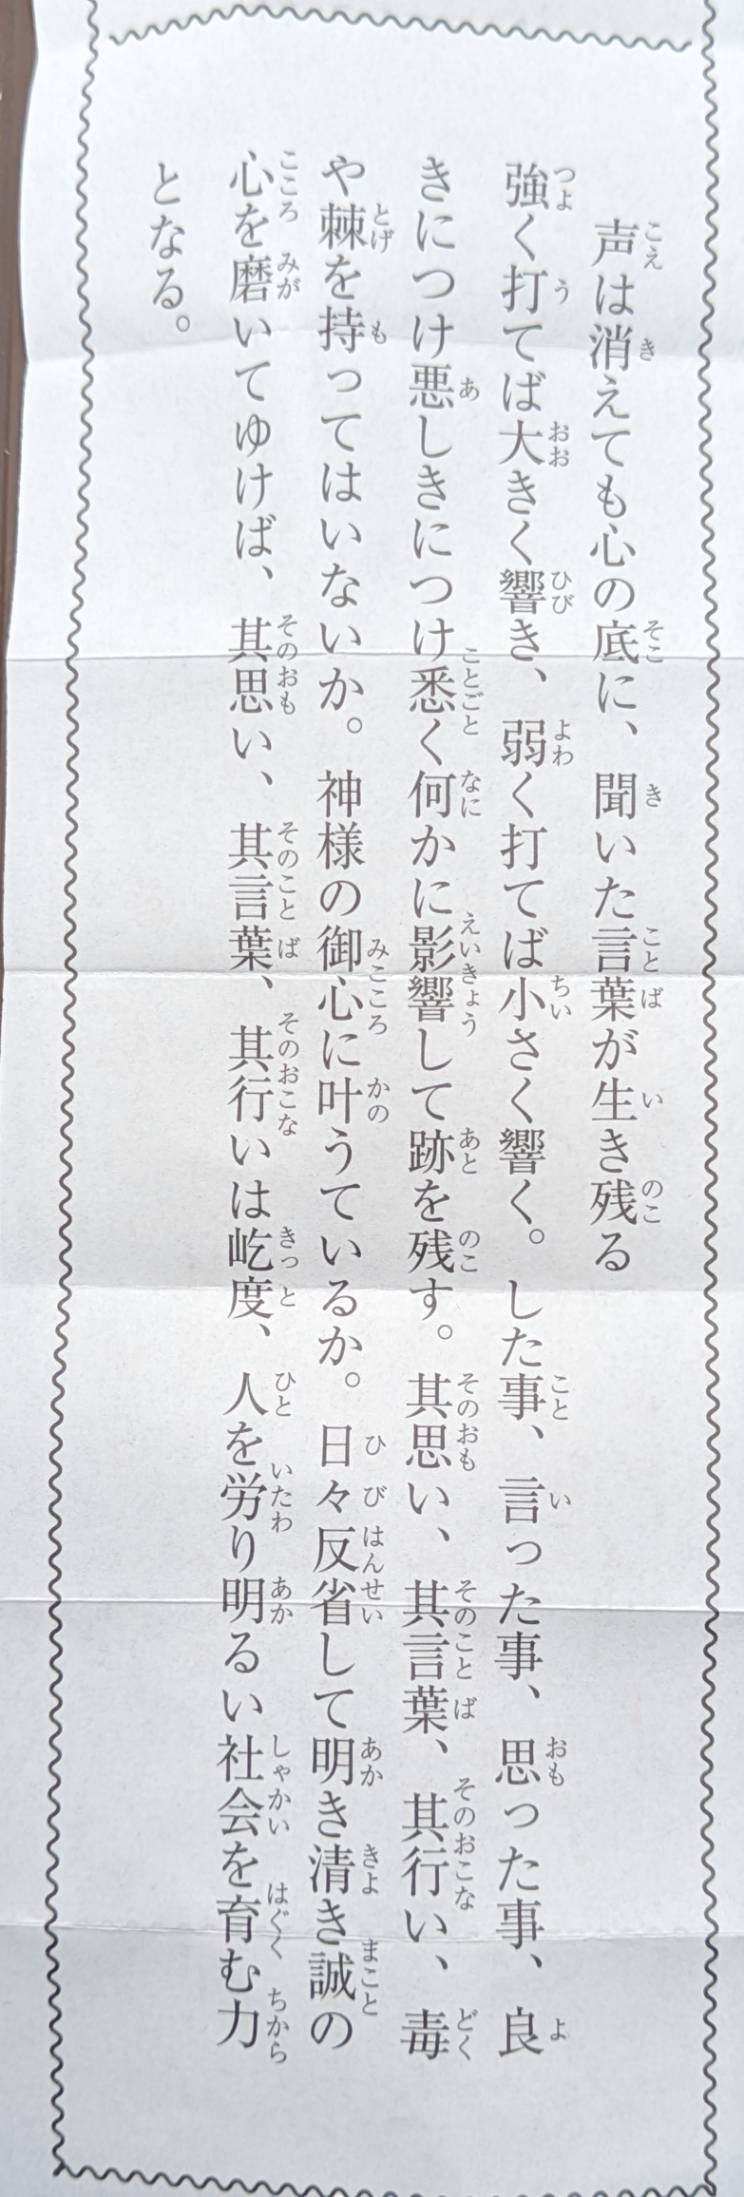 声は消えても心の底に、聞いた言葉が生き残る
強く打てば大きく響き、弱く打てば小さく響く。した事、言った事、思った事、良
きにつけ悪しきにつけ悉く何かに影響して跡を残す。其思い、其言葉、其行い、毒
や棘を持ってはいないか。神様の御心に叶うているか。日々反省して明き清き誠の
心を磨いてゆけば、其思い、其言葉、其行いは屹度、人を労り明るい社会を育む力
となる。